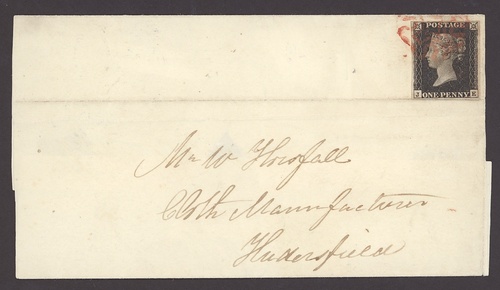 POSTAGE
J E
ONE PENNY
Mr W Horsfall
Cloth Manufacturer
Hudersfield